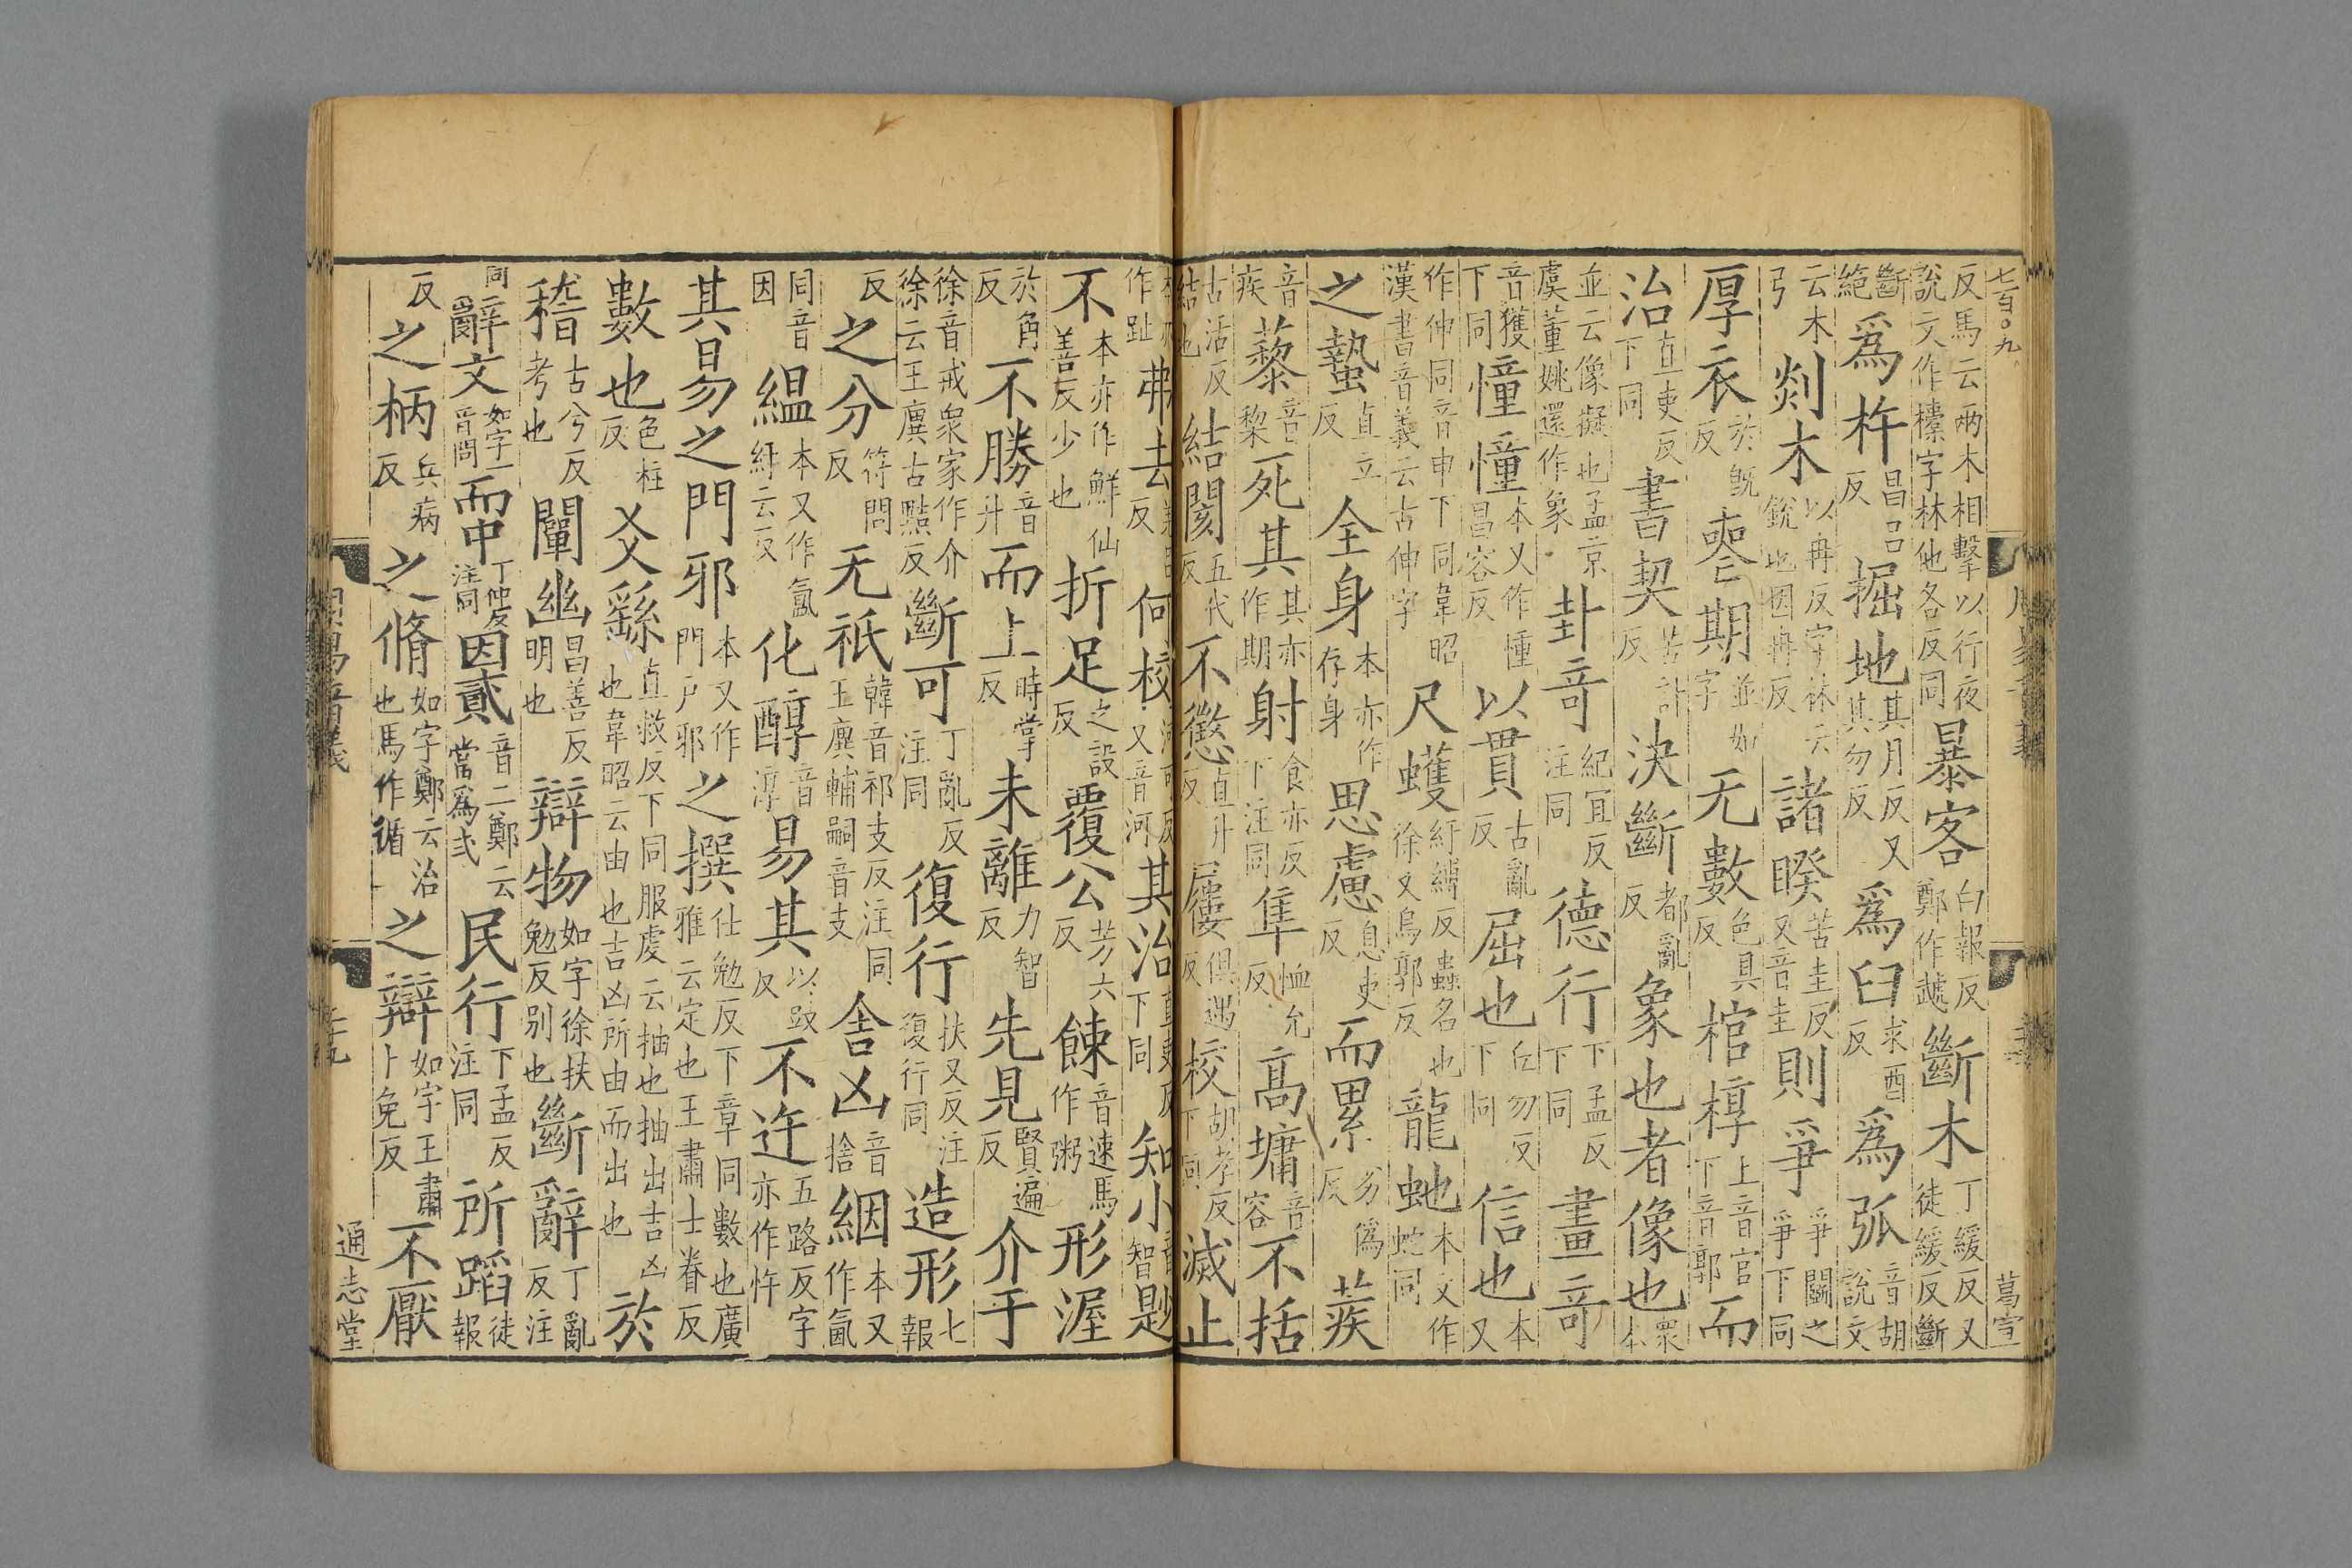 七百〇九
葛宣
反馬云兩木相擊以行夜說文作㯓字林他各反同暴客白報反鄭作虣斷木丁緩反又徒緩反斷
斷絕爲杵昌呂反掘地其月反又其勿反爲臼求酉反爲弧音胡說文
云木弓剡木以冉反字林云銳也因冉反諸睽苦圭反又音圭則爭爭鬭之爭下同
厚衣於旣反喪期並如字无數色具反棺椁上音官下音郭而
治直吏反下同書契苦計反決斷都亂反象也者像也衆本
並云像擬也孟京虞董姚還作象卦奇紀宜反注同德行下孟反下同畫奇
音獲下同憧憧本又作㣫昌容反以貫古亂反屈也丘勿反下同信也本又
作伸同音申下同韋昭漢書音義云古伸字尺蠖紆縛反蟲名也徐又烏郭反龍虵本又作蛇同
之蟄直立反全身本亦作存身思慮息吏反而累劣僞反蒺
音疾藜音棃死其其亦作期射食亦反下注同隼恤允反高墉音容不括
古活反結也結閡五代反不懲直升反屨俱遇反校胡孝反下同滅止
本亦作趾弗去羌呂反何校河可反又音河其治直吏反下同知小音智尟
不本亦作鮮仙善反少也折足之設反覆公芳六反餗音速馬作粥形渥
於角反不勝音升而上時掌反未離力智反先見賢遍反介于
徐音戒衆家作介徐云王廙古黠反斷可丁亂反注同復行扶又反注復行同造形七報
反之分符問反无祇韓音祁支反注同王廙輔嗣音支舍凶音捨絪本又作氤
同音因縕本又作氳紆云反化醇音淳易其以豉反不迕五路反字亦作忤
其易之門邪本又作門戶邪之撰仕勉反下章同數也廣雅云定也王肅士眷反
數也色柱反爻繇直救反下同服虔云抽也抽出吉凶也韋昭云由也吉凶所由而出也於
稽古兮反考也闡幽昌善反明也辯物如字徐扶勉反别也斷辭丁亂反注
同辭文如字一音問而中丁仲反注同因貳音二鄭云當爲弍民行下孟反注同所蹈徒報
反之柄兵病反之脩如字鄭云治也馬作循之辯如字王肅卜免反不厭
周易音義
二十九
通志堂